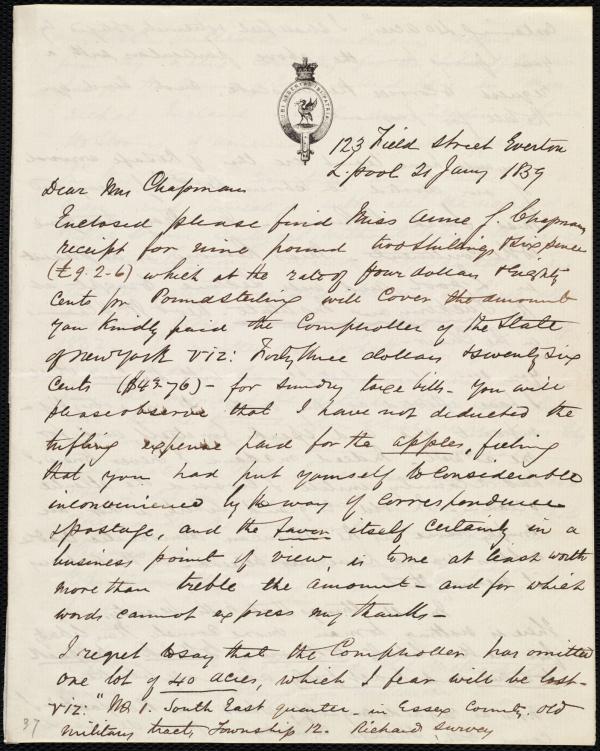 123 Field street Everton
L.pool 21 Jany 1859
Dear Mrs Chapman
Enclosed please find Miss Anne G. Chapman
receipt for nine pound two shillings & six pence
(£9-2-6) which at the rate of four dollars & eighty
cents pr Pound sterling will cover the amount
you kindly paid the Comptroller of the State
of New York viz: Forty three dollars & seventy six
cents ($43.76) - for sundry taxe bills - You will
please observe that I have not deducted the
trifling expense paid for the apples, feeling
that you had put yourself to considerable
inconvenience by the way of correspondence
& postage, and the favor itself certainly in a
business point of view, is to me at least worth
more than treble the amount - and for which
words cannot express my thanks -
I regret to say that the Comptroller has omitted
one lot of 40 acres, which I fear will be lost -
viz: "No 1. South East quarter - in Essex County. old
military tract, Township 12. Richards survey
37